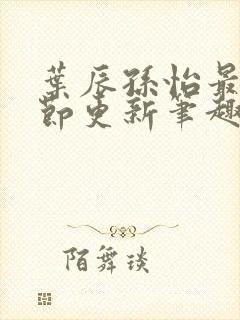 葉辰孫怡最
節更新筆趣
陌舞琰